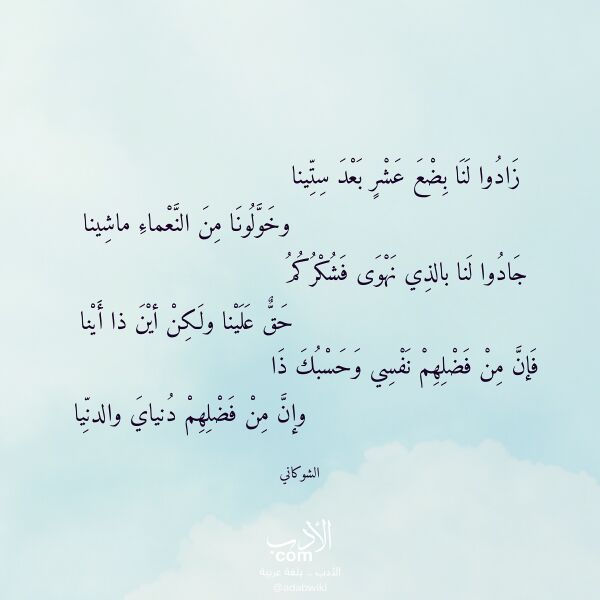 زَادُوا لَنَا بِضْعَ عَشْرٍ بَعْدَ سِتِّينا
وخَوَّلُونَا مِنَ النَّعْماءِ ماشِينا
جَادُوا لَنا بالذِي نَهْوَى فَشُكْرُكُمُ
حَقٌّ عَلَيْنا ولَكِنْ أيْنَ ذا أَيْنا
فَإنَّ مِنْ فَضْلِهِمْ نَفْسِي وَحَسْبُكَ ذَا
وإنَّ مِنْ فَضْلِهِمْ دُنيايَ والدنِّيا
الشوكاني
الأدب
.com
الأدب .. بلغة عربية
@adabwiki